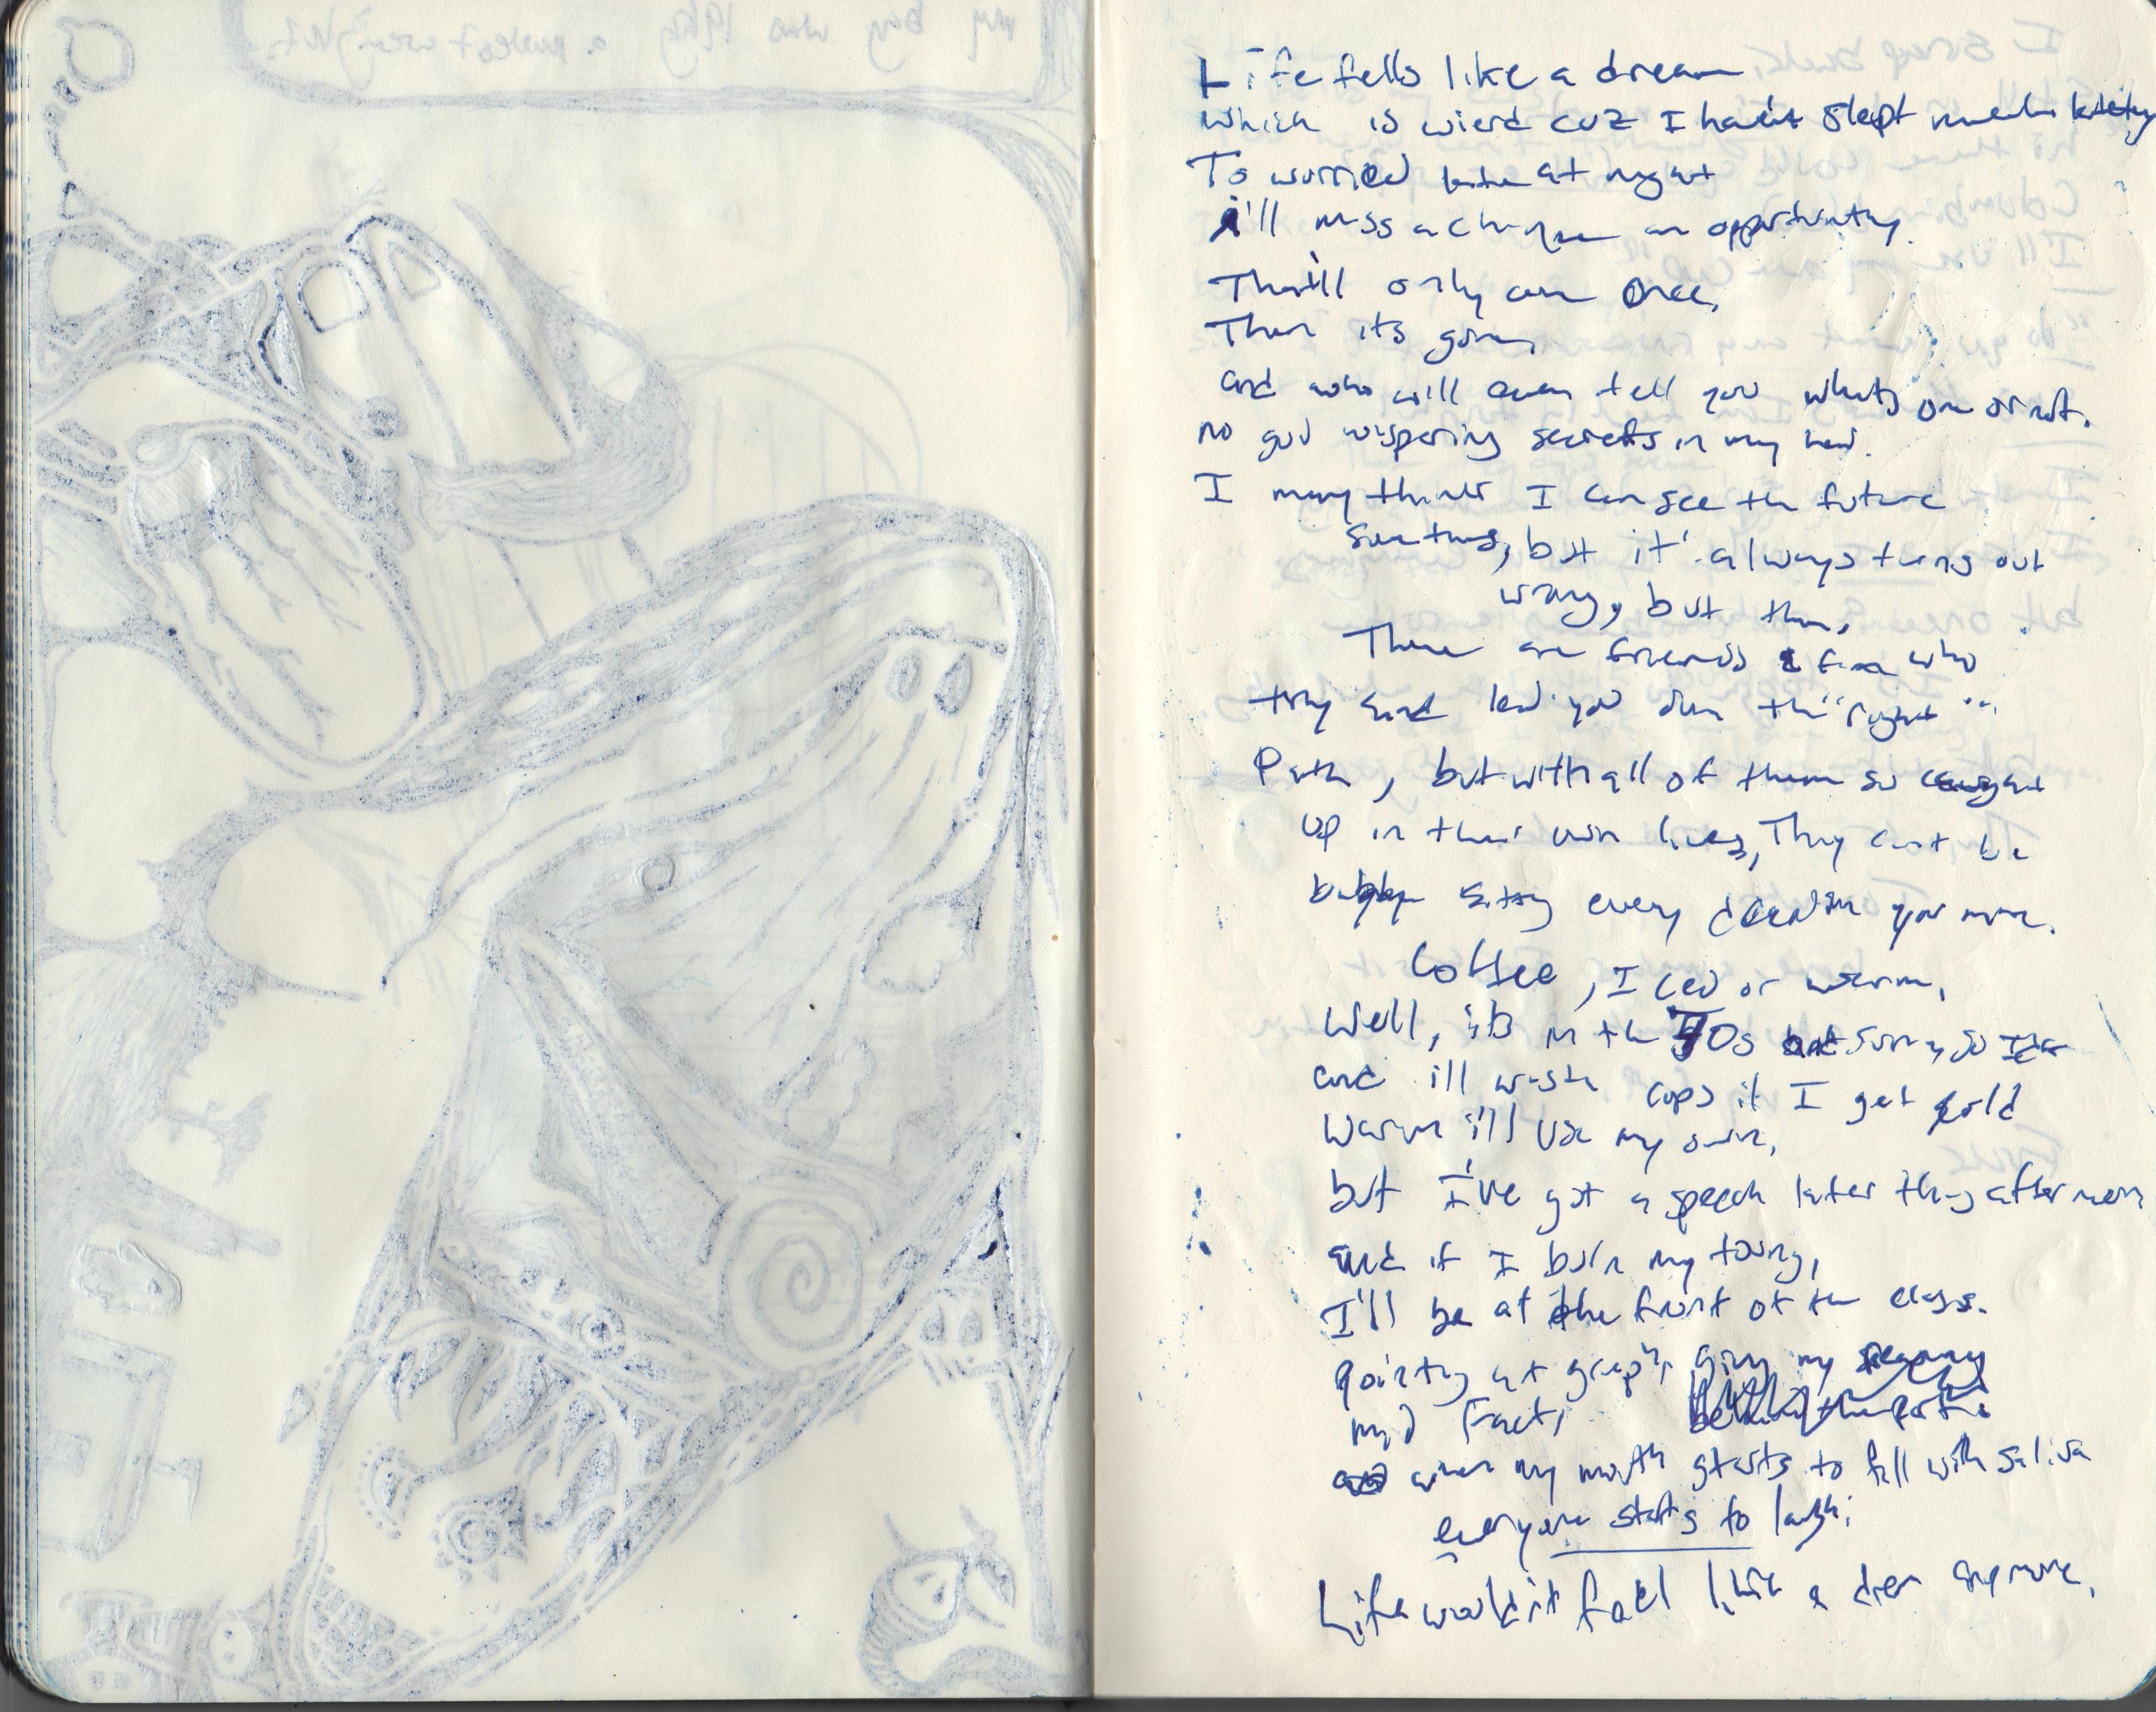 Life fells like a dream
which is wierd cuz I havent slept much lately
To worried late at night
i'll miss a chance an opportunity.
That'll only come once,
Then its gone,
and who will even tell you whats one or not.
no god wispering secrets in my head.
I may think I can see the future
sometimes, but it' always turns out
wrong, but then,
There are friends & fam who
try and lead you down the "right"
Path, but with all of them so caught
up in their own lives, They cant be
baby sitting every decision you make.
Coffee, Iced or warm,
Well, its in the 70s but sunny, so
and ill waste cups if I get cold
Warm i'll use my own,
but I've got a speech later this afternoon
and if I burn my toung,
I'll be at the front of the class.
pointing at graphs, giving my
and facts,
when my mouth starts to fill with saliva
everyone starts to laugh,
Life wouldnt feel like a dream anymore.